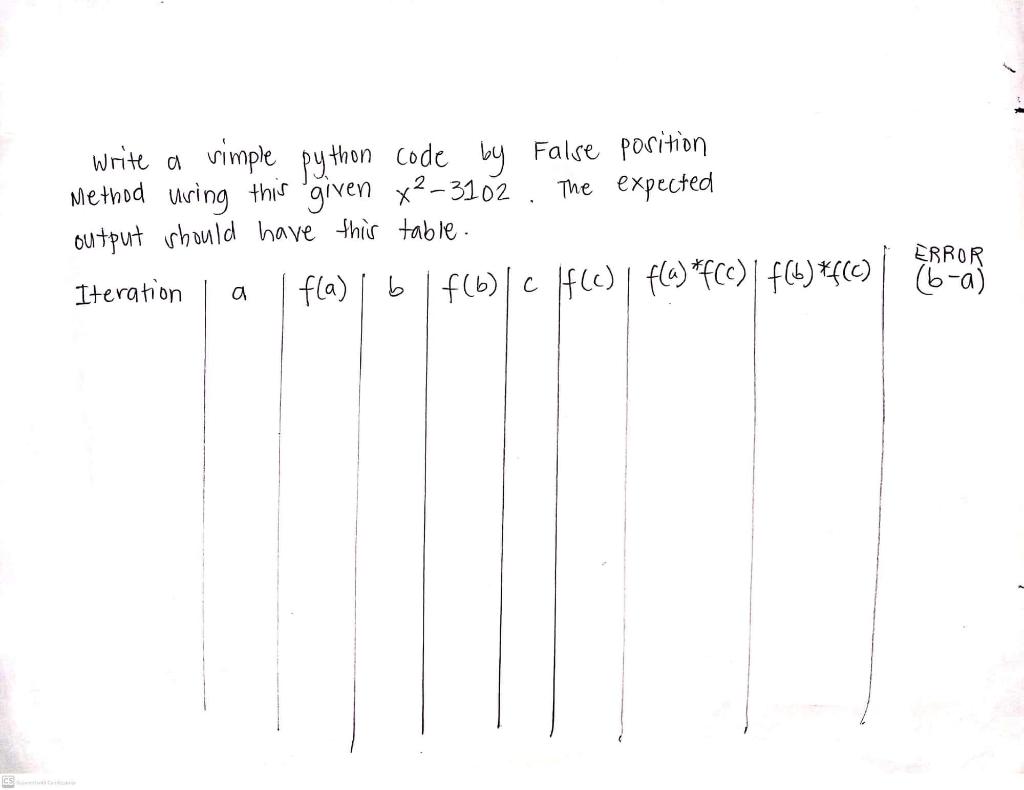 Write a simple python code by False position
Method using this given x²-3102. The expected
output should have this table.
Iteration | a | f(a) | b | f(b) | c | f(c) | f(a)*f(c) | f(b)*f(c) | ERROR (b-a)
CS